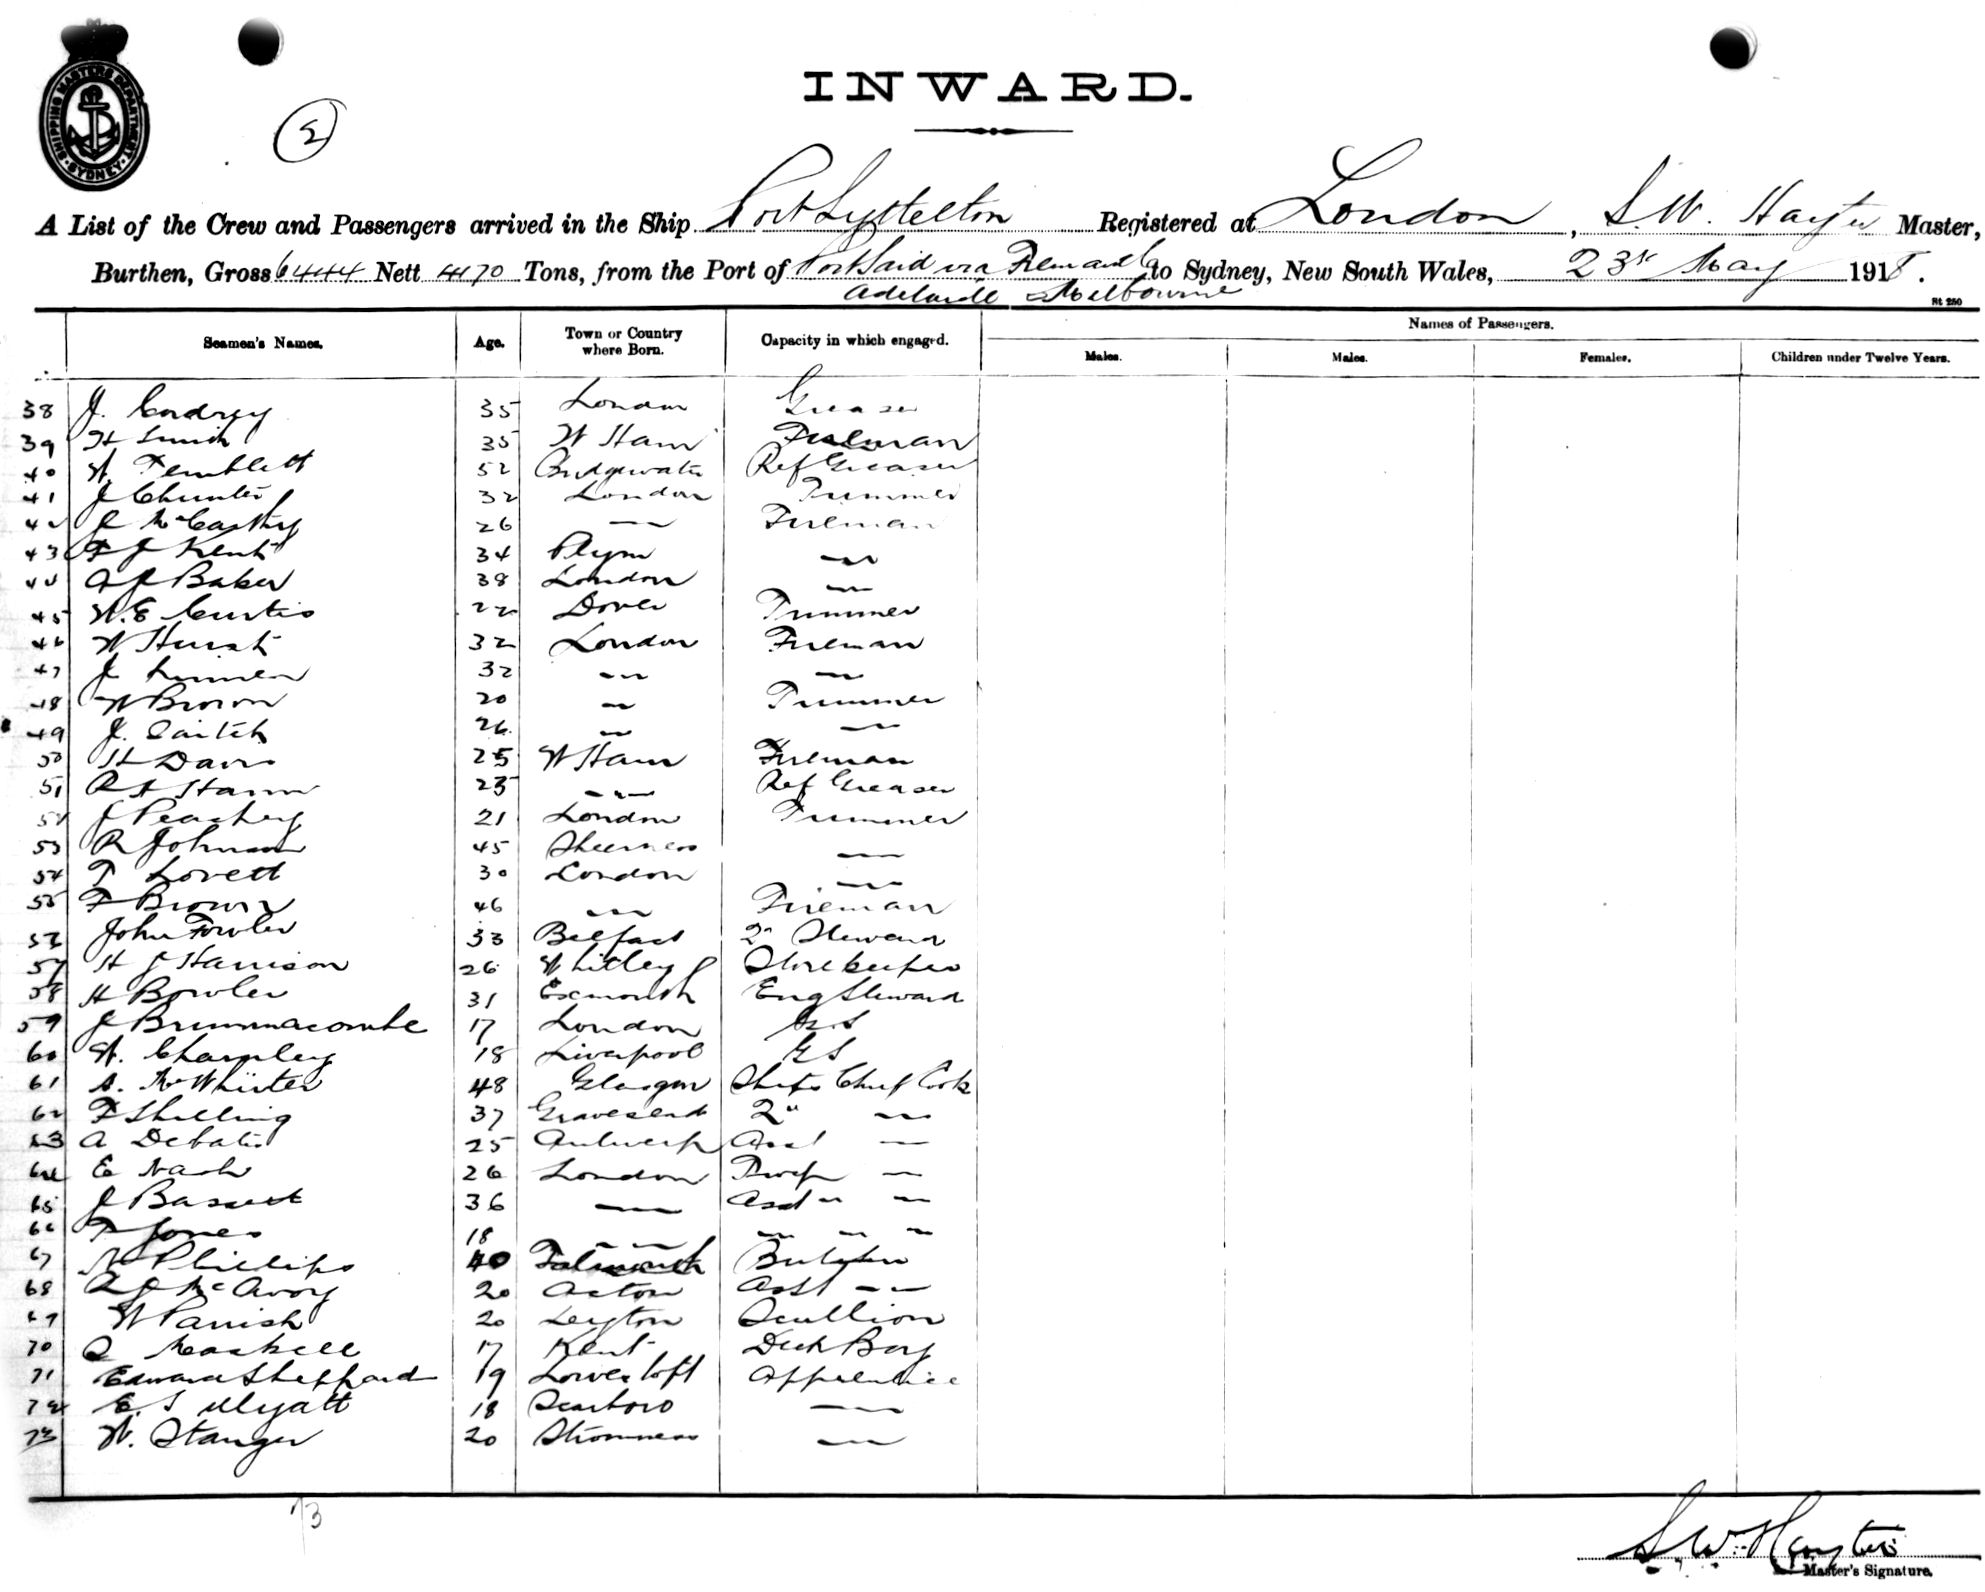 SHIPPING MASTERS DEPARTMENT
SYDNEY
2
INWARD.
A List of the Crew and Passengers arrived in the Ship Port Lyttelton Registered at London, S.W. Hayter Master,
Burthen, Gross 6444 Nett 4170 Tons, from the Port of Port Said via Fremantle to Sydney, New South Wales, 23rd May 1918.
Adelaide Melbourne
St 250
Seamen's Names. Age. Town or Country where Born. Capacity in which engaged. Names of Passengers.
Males. Males. Females. Children under Twelve Years.
38 J. Cordrey 35 London Greaser
39 H Smith 35 W Ham Fireman
40 W. Temblett 52 Bridgwater Ref Greaser
41 J Chunter 32 London Trimmer
42 J McCarthy 26 — Fireman
43 F J Kent 34 Plym —
44 A J Baker 38 London —
45 W.E Curtis 22 Dover Trimmer
46 W Hurst 32 London Fireman
47 J 32 — —
48 W Brown 20 — Trimmer
49 J. 26 — —
50 H Davis 25 W Ham Fireman
51 R H Hann 25 — Ref Greaser
52 J Peachey 21 London Trimmer
53 R Johnson 45 Sheerness —
54 T Lovett 30 London —
55 F Brown 46 — Fireman
John Fowler 33 Belfast 2n Steward
57 H J Harrison 26 Whitley Storekeeper
58 H Bowler 31 Exmouth Eng Steward
59 J Brummacombe 17 London G.S
60 W. Charnley 18 Liverpool G S
61 A. McWhirter 48 Glasgow Ships Chief Cook
62 F Shilling 37 Gravesend 2" —
63 A Debatis 25 Antwerp Asst —
64 E Nash 26 London Troop —
65 J Bassett 36 — Asst " —
66 T Jones 18 — — — —
67 N Phillips 40 Falmouth Butcher
68 A J McAvoy 20 Acton Asst —
69 W Parrish 20 Leyton Scullion
70 Maskell 17 Kent Deck Boy
71 Edward Sheppard 19 Lowestoft Apprentice
72 E. S Wyatt 18 Scarboro —
73 W. Stanger 20 Stromness —
73
S W Hayter
Master's Signature.